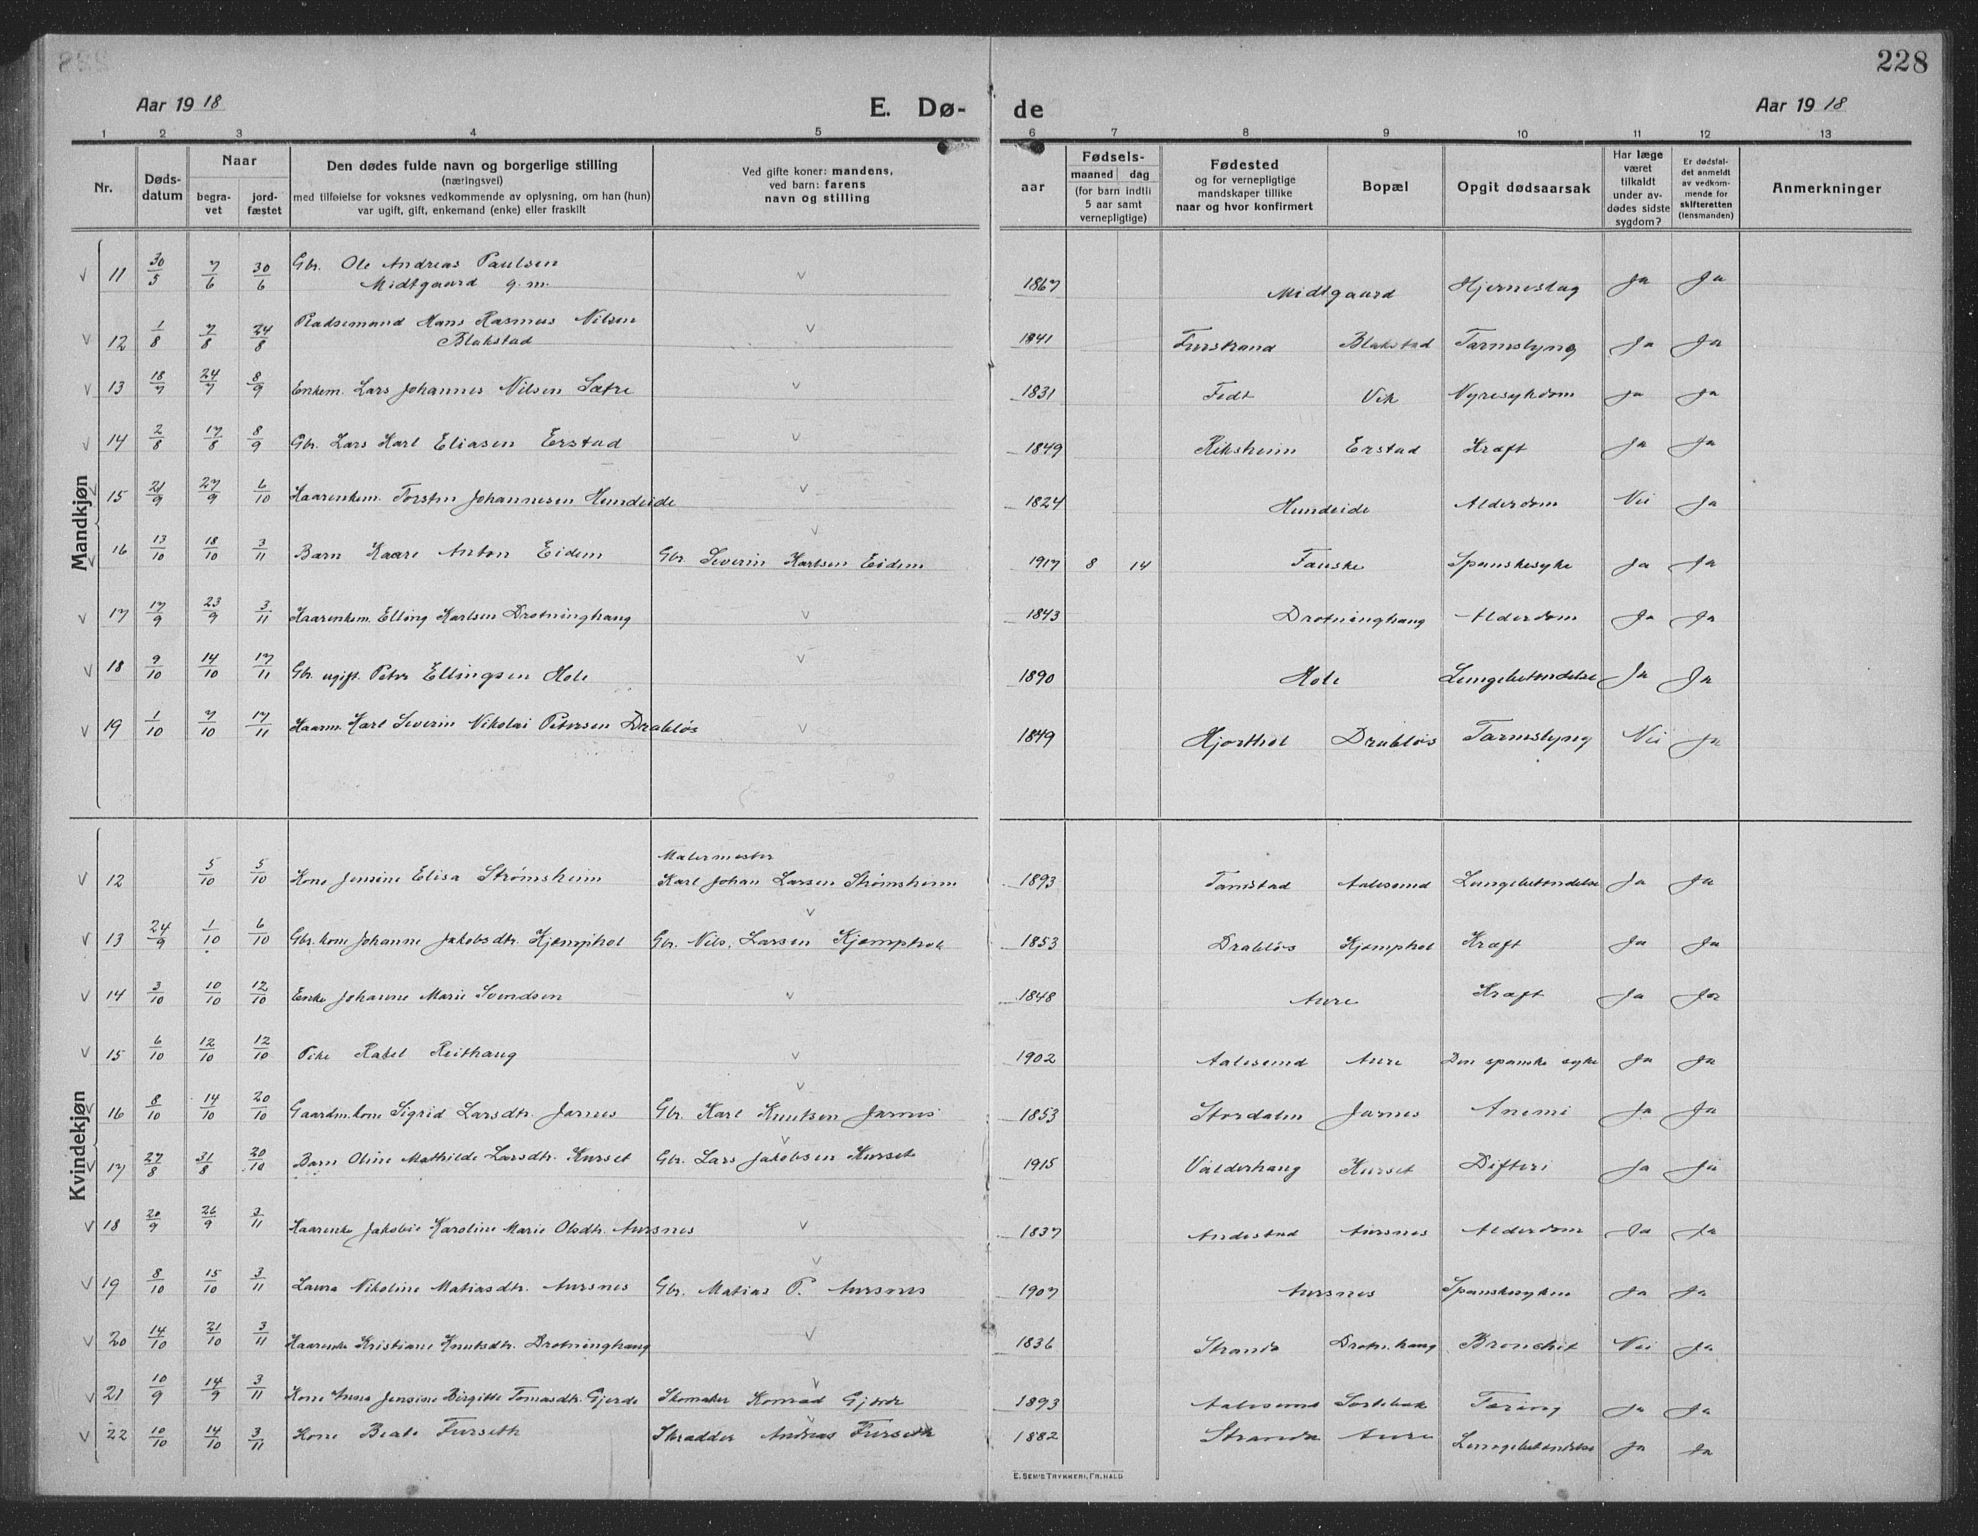 228
Aar 1918 E. Dø- de Aar 1918
1 2 3 4 5 6 7 8 9 10 11 12 13
Nr. Døds-datum Naar begra-vet jord-fæstet Den dødes fulde navn og borgerlige stilling (næringsvei) med tilføielse for voksnes vedkommende av oplysning, om han (hun) var ugift, gift, enkemand (enke) eller fraskilt Ved gifte koner: mandens, ved barn: farens navn og stilling aar Fødsels- maaned dag (for barn indtil 5 aar samt vernepligtige) Fødested og for vernepligtige mandskaper tillike naar og hvor konfirmert Bopæl Opgit dødsaarsak Har læge været tilkaldt under av-dødes sidste sygdom? Er dødsfal-det anmeldt av vedkom-mende for skifteretten (lensmanden) Anmerkninger
Mandkjøn
11 30/5 7/6 30/6 Gbr. Ole Andreas Paulsen Midtgaard g.m. 1867 Midtgaard Hjerneslag Ja Ja
12 1/8 7/8 24/8 Radsemand Hans Rasmus Nilsen Blakstad 1841 Furstrand Blakstad Tarmslyng Ja Ja
13 18/7 24/7 8/9 Enkem. Lars Johannes Nilsen Sætre 1831 Fedt Vik Nyresykdom Ja Ja
14 2/8 17/8 8/9 Gbr. Lars Karl Eliasen Erstad 1849 Riksheim Erstad Kræft Ja Ja
15 21/9 27/9 6/10 Kaarenkem. Torsten Johannesen Hundeide 1824 Hundeide Alderdom Nei Ja
16 13/10 18/10 3/11 Barn Kaare Anton Eidem Gbr. Severin Karlsen Eidem 1917 8 14 Tauske Spanskesyke Ja Ja
17 17/9 23/9 3/11 Kaarenkem. Elling Karlsen Drotninghaug 1843 Drotninghaug Alderdom Ja Ja
18 9/10 14/10 17/11 Gbr. ugift. Peter Ellingsen Hole 1890 Hole Lungebetændelse Ja Ja
19 1/10 7/10 17/11 Kaarm. Karl Severin Nikolai Petersen Drabløs 1849 Hjorthol Drabløs Tarmslyng Nei Ja
Kvindekjøn
12 5/10 5/10 Kone Jensine Elisa Strømsheim Malermester Karl Johan Larsen Strømsheim 1893 Tamstad Aalesund Lungebetændelse Ja Ja
13 24/9 1/10 6/10 Gbr. kone Johanne Jakobsdtr. Kjæmphol Gbr. Nils Larsen Kjæmphol 1853 Drabløs Kjæmphol Kræft Ja Ja
14 3/10 10/10 12/10 Enke Johanne Marie Svendsen 1848 Aure Kræft Ja Ja
15 6/10 12/10 12/10 Pike Rakel Reithaug 1902 Aalesund Aure Den spanske syke Ja Ja
16 8/10 14/10 20/10 Gaardm.kone Sigrid Larsdtr. Jarnes Gbr. Karl Knutsen Jarnes 1853 Stordalen Jarnes Anemi Ja Ja
17 27/8 31/8 20/10 Barn Oline Mathilde Larsdtr. Kurset Gbr. Lars Jakobsen Kurset 1915 Valderhaug Kurset Difteri Ja Ja
18 20/9 26/9 3/11 Kaarenke Jakobie Karoline Marie Olsdtr. Aursnes 1837 Andestad Aursnes Alderdom Ja Ja
19 8/10 15/10 3/11 Laura Nikoline Matiasdtr. Aursnes Gbr. Matias P. Aursnes 1907 Aursnes Spanskesyken Ja Ja
20 14/10 21/10 3/11 Kaarenke Kristiane Knutsdtr. Drotninghaug 1836 Stranda Drotn.haug Bronchit Nei Ja
21 10/9 14/9 3/11 Kone Anna Jensine Birgitte Tomasdtr. Gjerde Skomaker Konrad Gjerde 1893 Aalesund Sortebak Tæring Ja Ja
22 10/10 14/10 3/11 Kone Beate Furseth Skrædder Andreas Furseth 1882 Stranda Aure Lungebetændelse Ja Ja
E. SEM'S TRYKKERI, FR.HALD